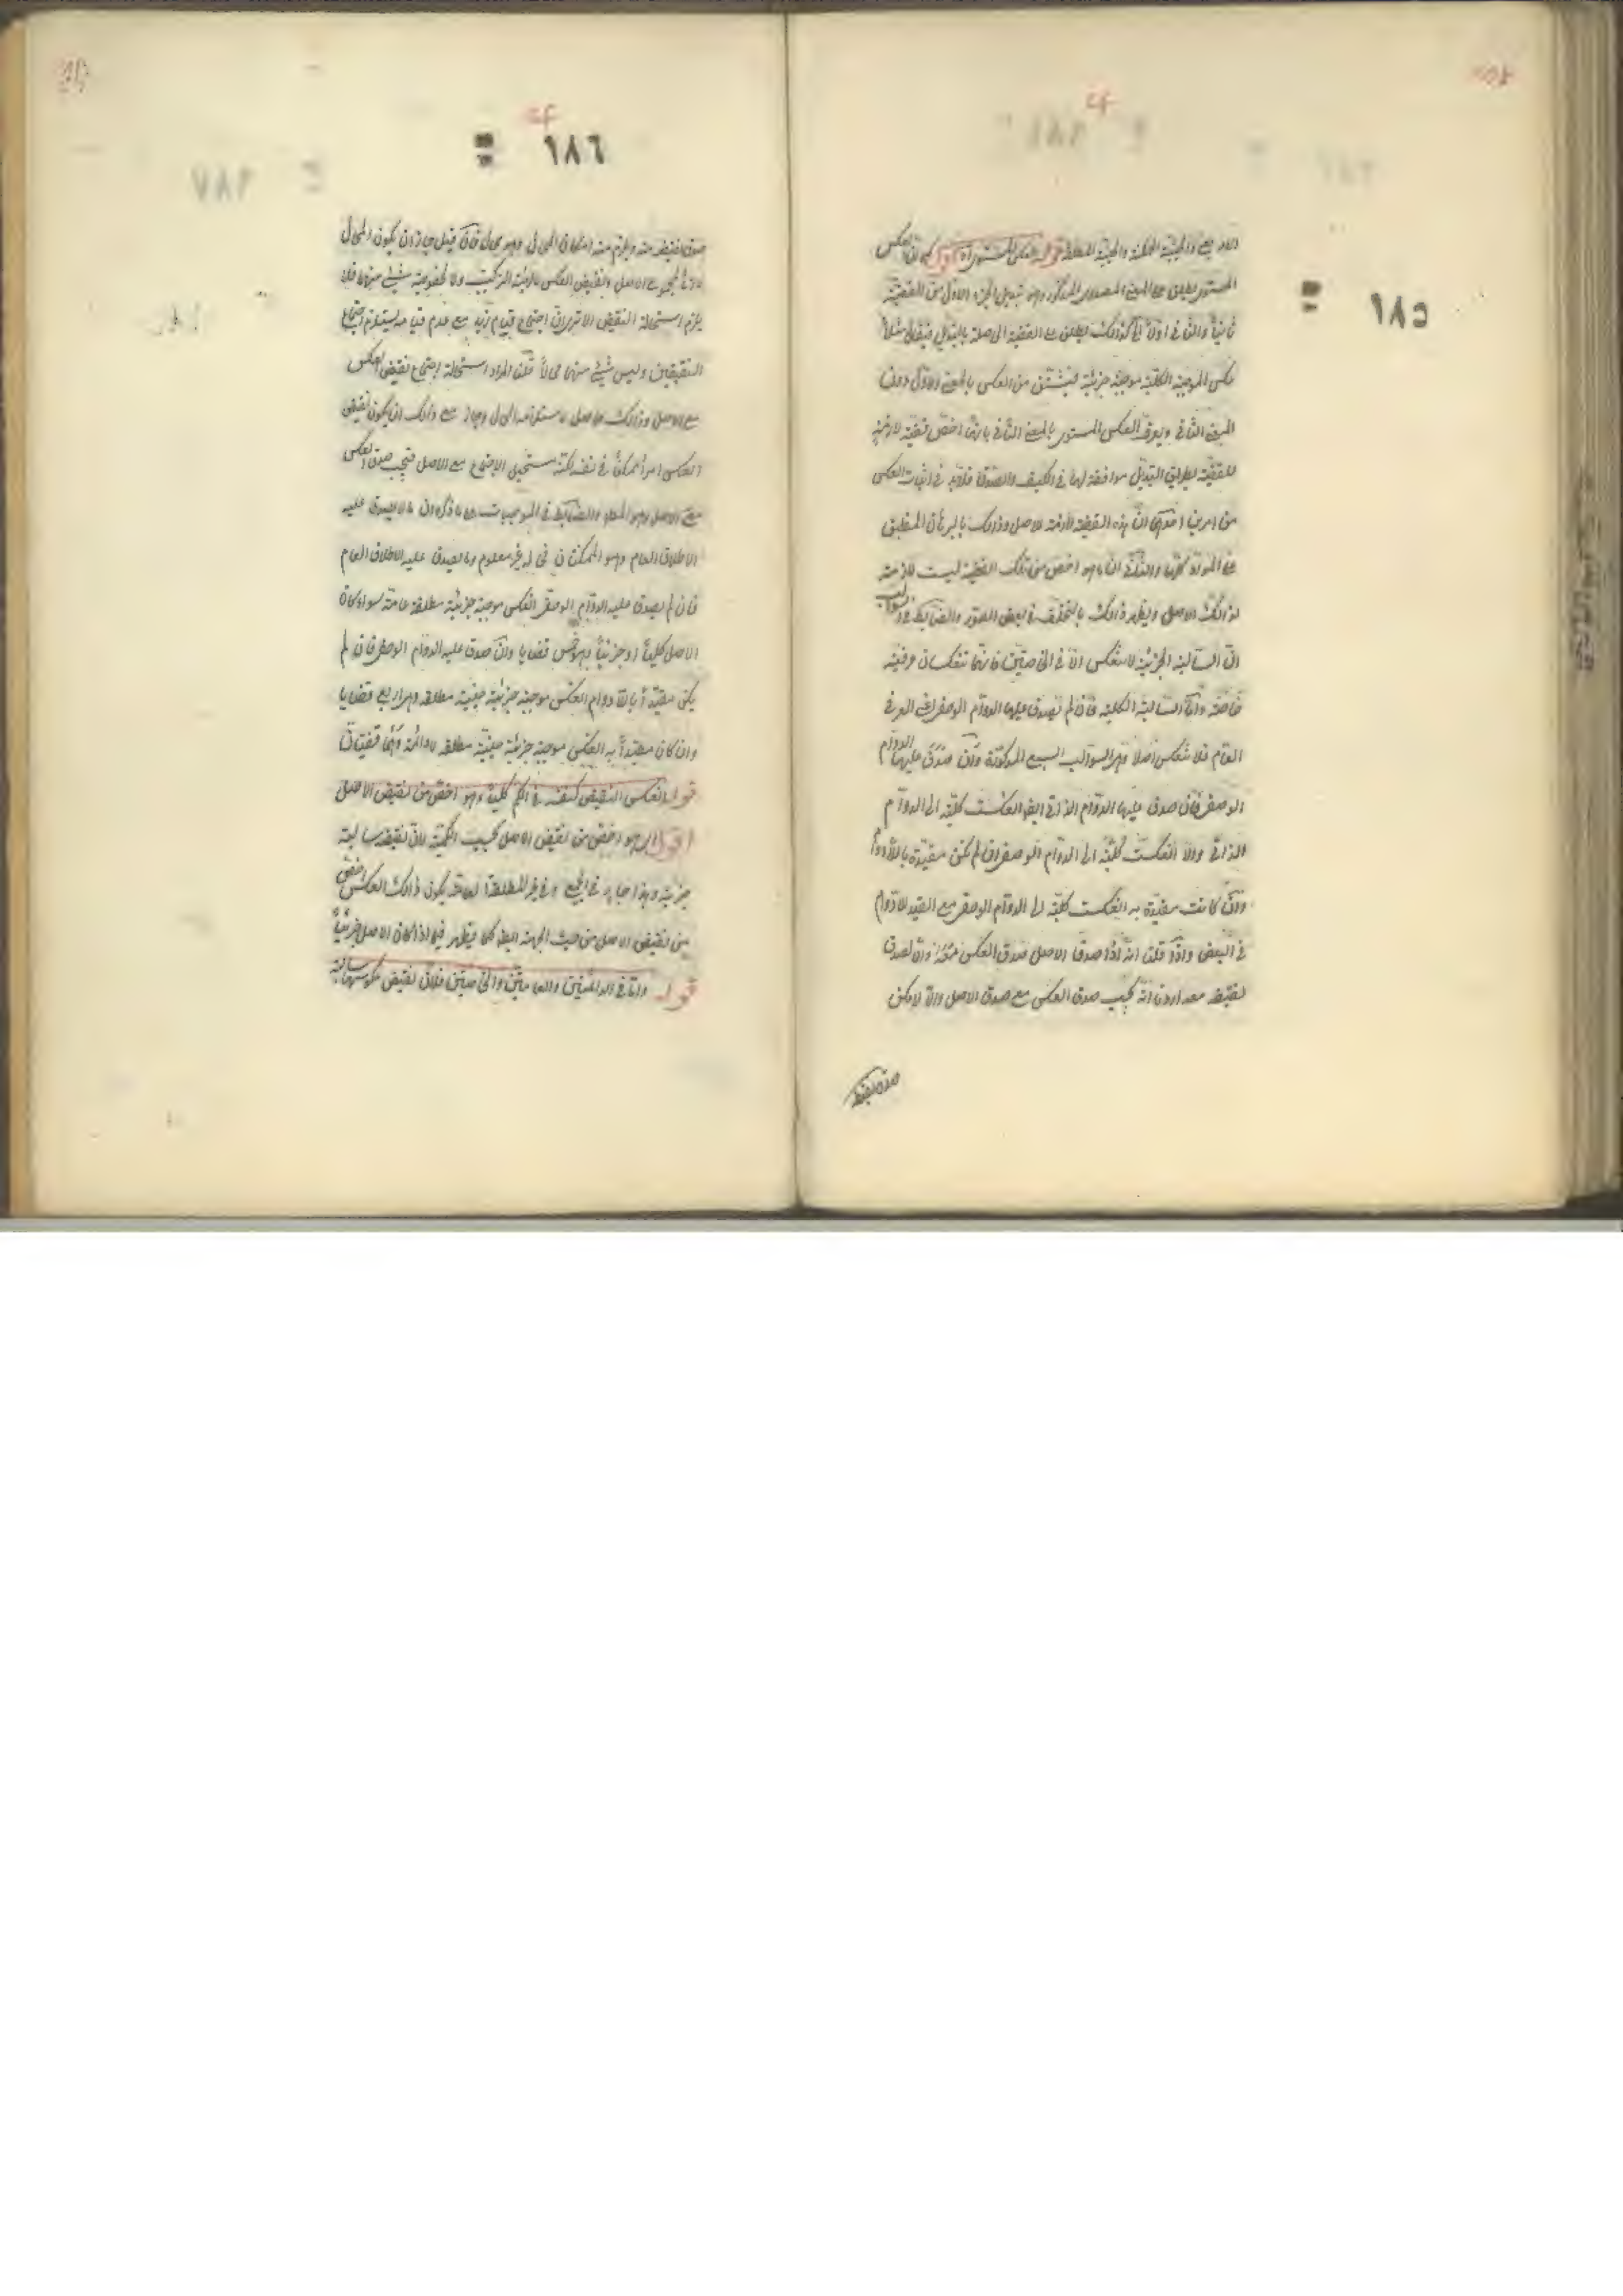 ١٨٥
الاربع والحينية الممكنة والحينية المطلقة قوله العكس المستوى اه اقول كما ان العكس
المستوى يطلق على المعنى المصدرى المذكور وهو تبديل الجزء الاول من القضية
ثانيا والثانى اولا الخ كذلك يطلق على القضية الحاصلة بالتبديل فيقال مثلا
عكس الموجبة الكلية موجبة جزئية فيشتق من العكس بالمعنى الاول دون
المعنى الثانى ويعرف العكس المستوى بالمعنى الثانى بانه اخص قضية لازمة
للقضية بطريق التبديل موافقة لها فى الكيف والصدق فلابد فى اثبات العكس
من امرين احدهما ان هذه القضية لازمة للاصل وذلك بالبرهان المنطبق
على المواد كلها والثانى ان ما هو اخص من تلك القضية ليست لازمة
لذلك الاصل ويظهر ذلك بالتخلف فى بعض الصور والضابط فى السوالب
ان السالبة الجزئية لا تنعكس الا فى الخاصتين فانهما تنعكسان عرفية
خاصة واما السالبة الكلية فان لم يصدق عليها الدوام الوصفى اعنى العرفى
العام فلا تنعكس اصلا وهى السوالب السبع المذكورة وان صدق عليها الدوام
الوصفى فان صدق عليها الدوام الذاتى ايضا انعكست كلية الى الدوام
الذاتى والا انعكست كلية الى الدوام الوصفى ان لم تكن مقيدة باللادوام
وان كانت مقيدة به انعكست كلية الى الدوام الوصفى مع القيد اللادوام
فى البعض واذا قلنا انه اذا صدق الاصل صدق العكس معه والا لصدق
نقيضه معه اردنا انه يجب صدق العكس مع صدق الاصل والا لامكن
صدق نقيضه
١٨٦
صدق نقيضه معه ويلزم منه امكان المحال وهو محال فان قيل جاز ان يكون المحال
لازما لمجموع الاصل ونقيض العكس بالهيئة التركيب ولا لخصوصية شىء منهما فلا
يلزم استحالة النقيض الا ترى ان اجتماع قيام زيد مع عدم قيامه يستلزم اجتماع
النقيضين وليس شىء منهما محالا قلنا المراد استحالة اجتماع نقيض العكس
مع الاصل وذلك حاصل لاستلزامه المحال وجاز مع ذلك ان يكون نقيض
العكس امرا ممكنا فى نفسه لكنه مستحيل الاجتماع مع الاصل فيجب صدق العكس
مع الاصل وهو المط والضابط فى الموجبات على ما ذكره ان ما لا يصدق عليه
الاطلاق العام وهو الممكنتان فحاله غير معلوم وما يصدق عليه الاطلاق العام
فان لم يصدق عليه الدوام الوصفى انعكس موجبة جزئية مطلقة عامة سواء كان
الاصل كليا او جزئيا وهو خمس قضايا وان صدق عليه الدوام الوصفى فان لم
يكن مقيدا باللادوام انعكس موجبة جزئية حينية مطلقة وهى اربع قضايا
وان كان مقيدا به انعكس موجبة جزئية حينية مطلقة لا دائمة وهما قضيتان
قوله انعكس النقيض كنفسه فى الكم كلية وهو اخص من نقيض الاصل
اقول اى هو اخص من نقيض الاصل بحسب الكمية لان نقيضه سالبة
جزئية وهذا جار فى الجميع وفى غير المطلقة العامة يكون ذلك العكس اخص
من نقيض الاصل من حيث الجهة ايضا كما يظهر فيما اذا كان الاصل جزئيا
قوله واما فى الدائمتين والعامتين والخاصتين فلان نقيض عكوسها سالبة